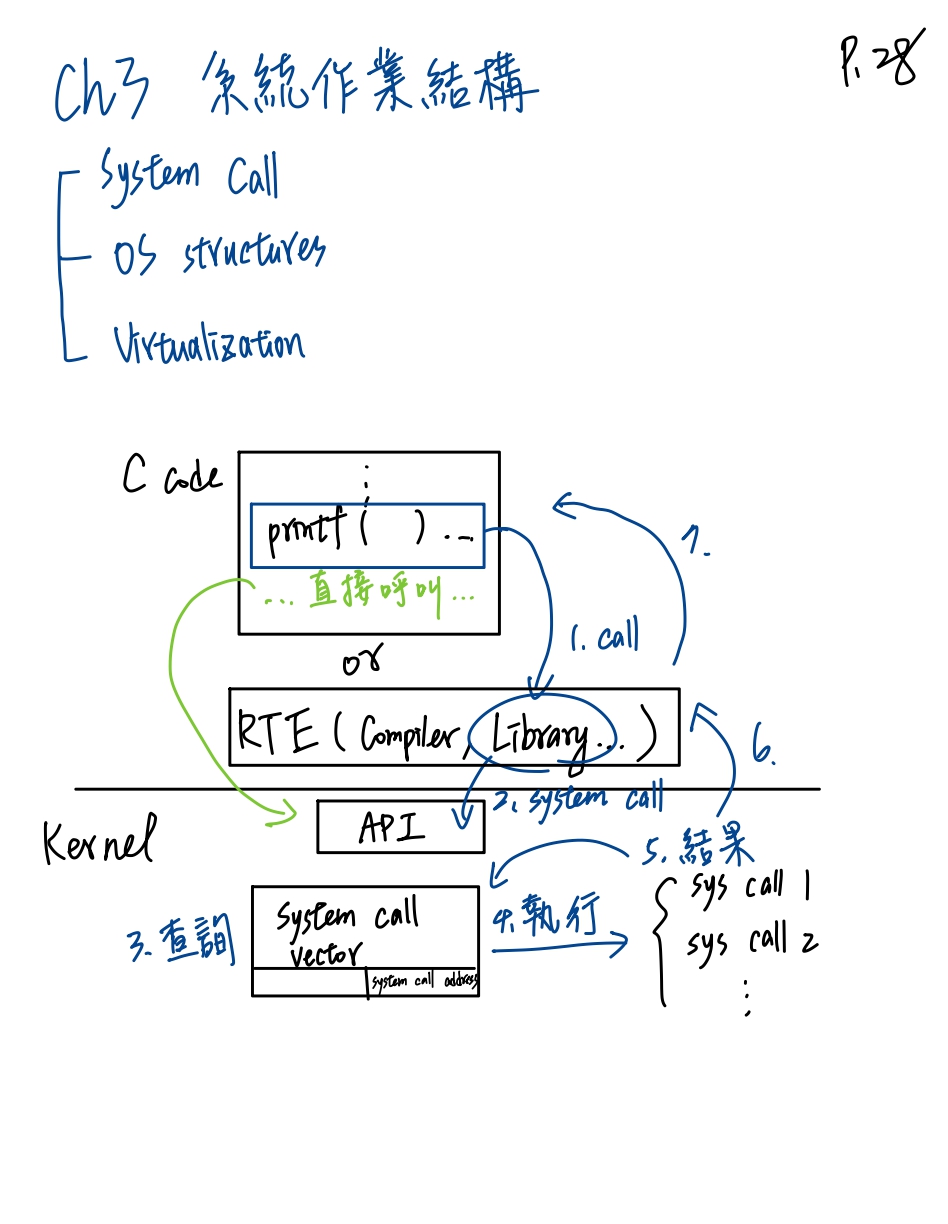 Ch3 系統作業結構
P.28
System Call
OS structures
Virtualization
C code
printf( ) ...
... 直接呼叫 ...
1. call
7.
or
RTE ( Compiler, Library... )
6.
2. system call
Kernel
API
5. 結果
3. 查詢
System call
vector
system call address
4. 執行
sys call 1
sys call 2